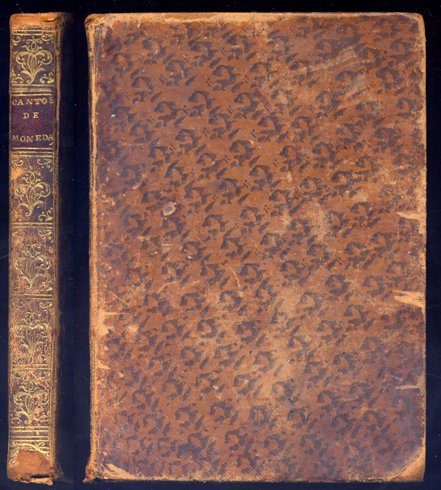 CANTOS
DE
MONEDA